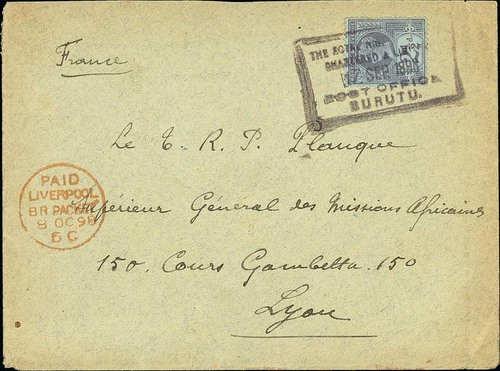 France
THE ROYAL NIGER
CHARTERED &
SEP. 189
POST OFFICE
BURUTU.
Le T. R. P. Planque
PAID
LIVERPOOL
BR. PACKET
8 OC 98
6 C
Supérieur Général des Missions Africaines
150. Cours Gambetta. 150
Lyon